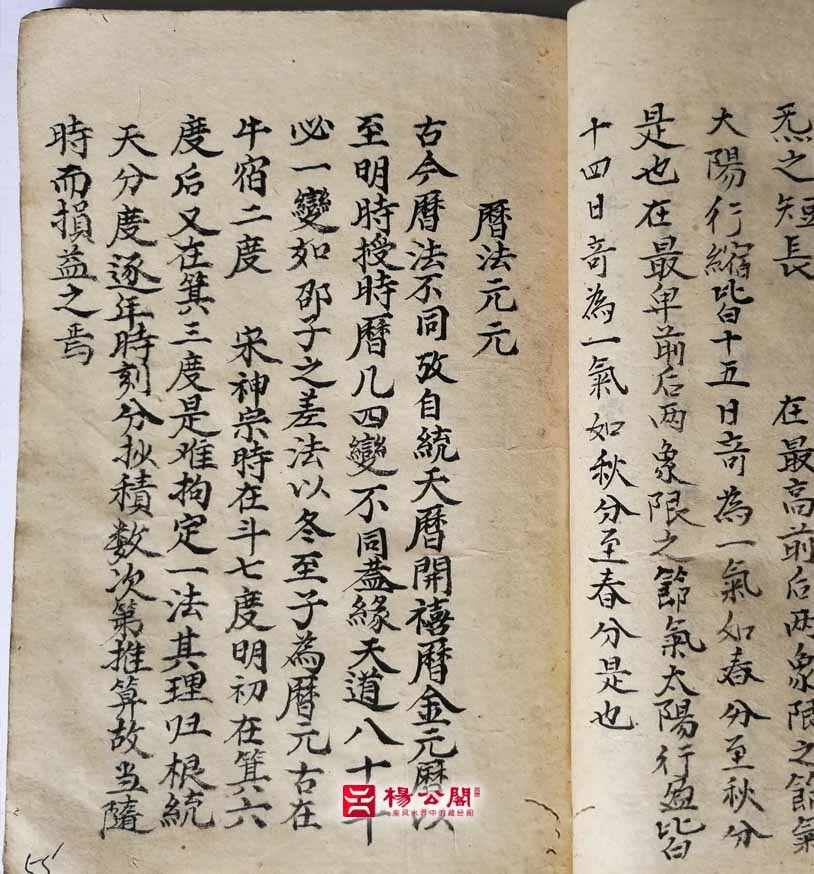 炁之短長 在最高前后两象限之節氣
大陽行縮皆十五日竒為一氣如春分至秋分
是也在最卑前后两象限之節氣太陽行盈皆
十四日竒為一氣如秋分至春分是也
曆法元元
古今曆法不同攷自統天曆開禧曆金元曆以
至明時授時曆几四變不同葢緣天道八十年
必一變如邵子之差法以冬至子為曆元古在
牛宿二度 宋神宗時在斗七度明初在箕六
度后又在箕三度是难拘定一法其理归根統
天分度逐年時刻分抄積数次第推算故当隨
時而損益之焉
55
楊公閣
一座风水界中的藏经阁